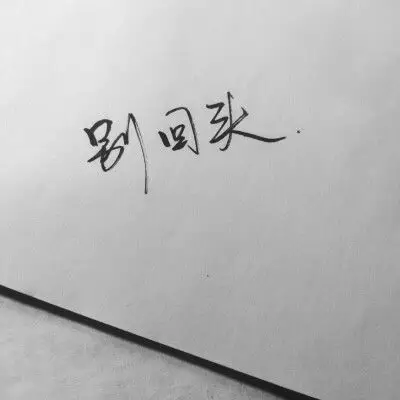 别回头.